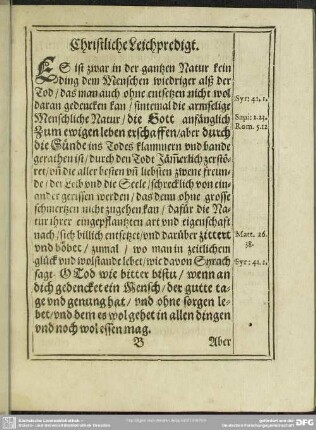 Christliche Leichpredigt.
ES ist zwar in der gantzen Natur kein
ding dem Menschen wiedriger alß der
Tod / das man auch ohne entsetzen nicht wol
daran gedencken kan / sintemal die armselige
Menschliche Natur / die Gott anfänglich
zum ewigen leben erschaffen / aber durch
die Sünde ins Todes klammern vnd bande
gerathen ist / durch den Todt Jäm̃erlich zerstö-
ret / vn̄ die aller besten vn̄ liebsten zwene freun-
de / der Leib vnd die Seele / schrecklich von ein-
ander gerissen werden / das denn ohne grosse
schmertzen nicht zugehen kan / dafür die Na-
tur ihrer eingepflantzten art vnd eigenschafft
nach / sich billich entsetzet / vnd darüber zittert
vnd böbet / zumal / wo man in zeitlichem
glück vnd wolstande lebet / wie davon Syrach
sagt: O Tod wie bitter bistu / wenn an
dich gedencket ein Mensch / der gutte ta-
ge vnd genung hat / vnd ohne sorgen le-
bet / vnd dem es wol gehet in allen dingen
vnd noch wol essen mag.
B Aber
Syr: 41. 1.
Sapi: 2. 23.
Rom. 5. 12
Matt. 26.
38.
Syr: 41. 1.